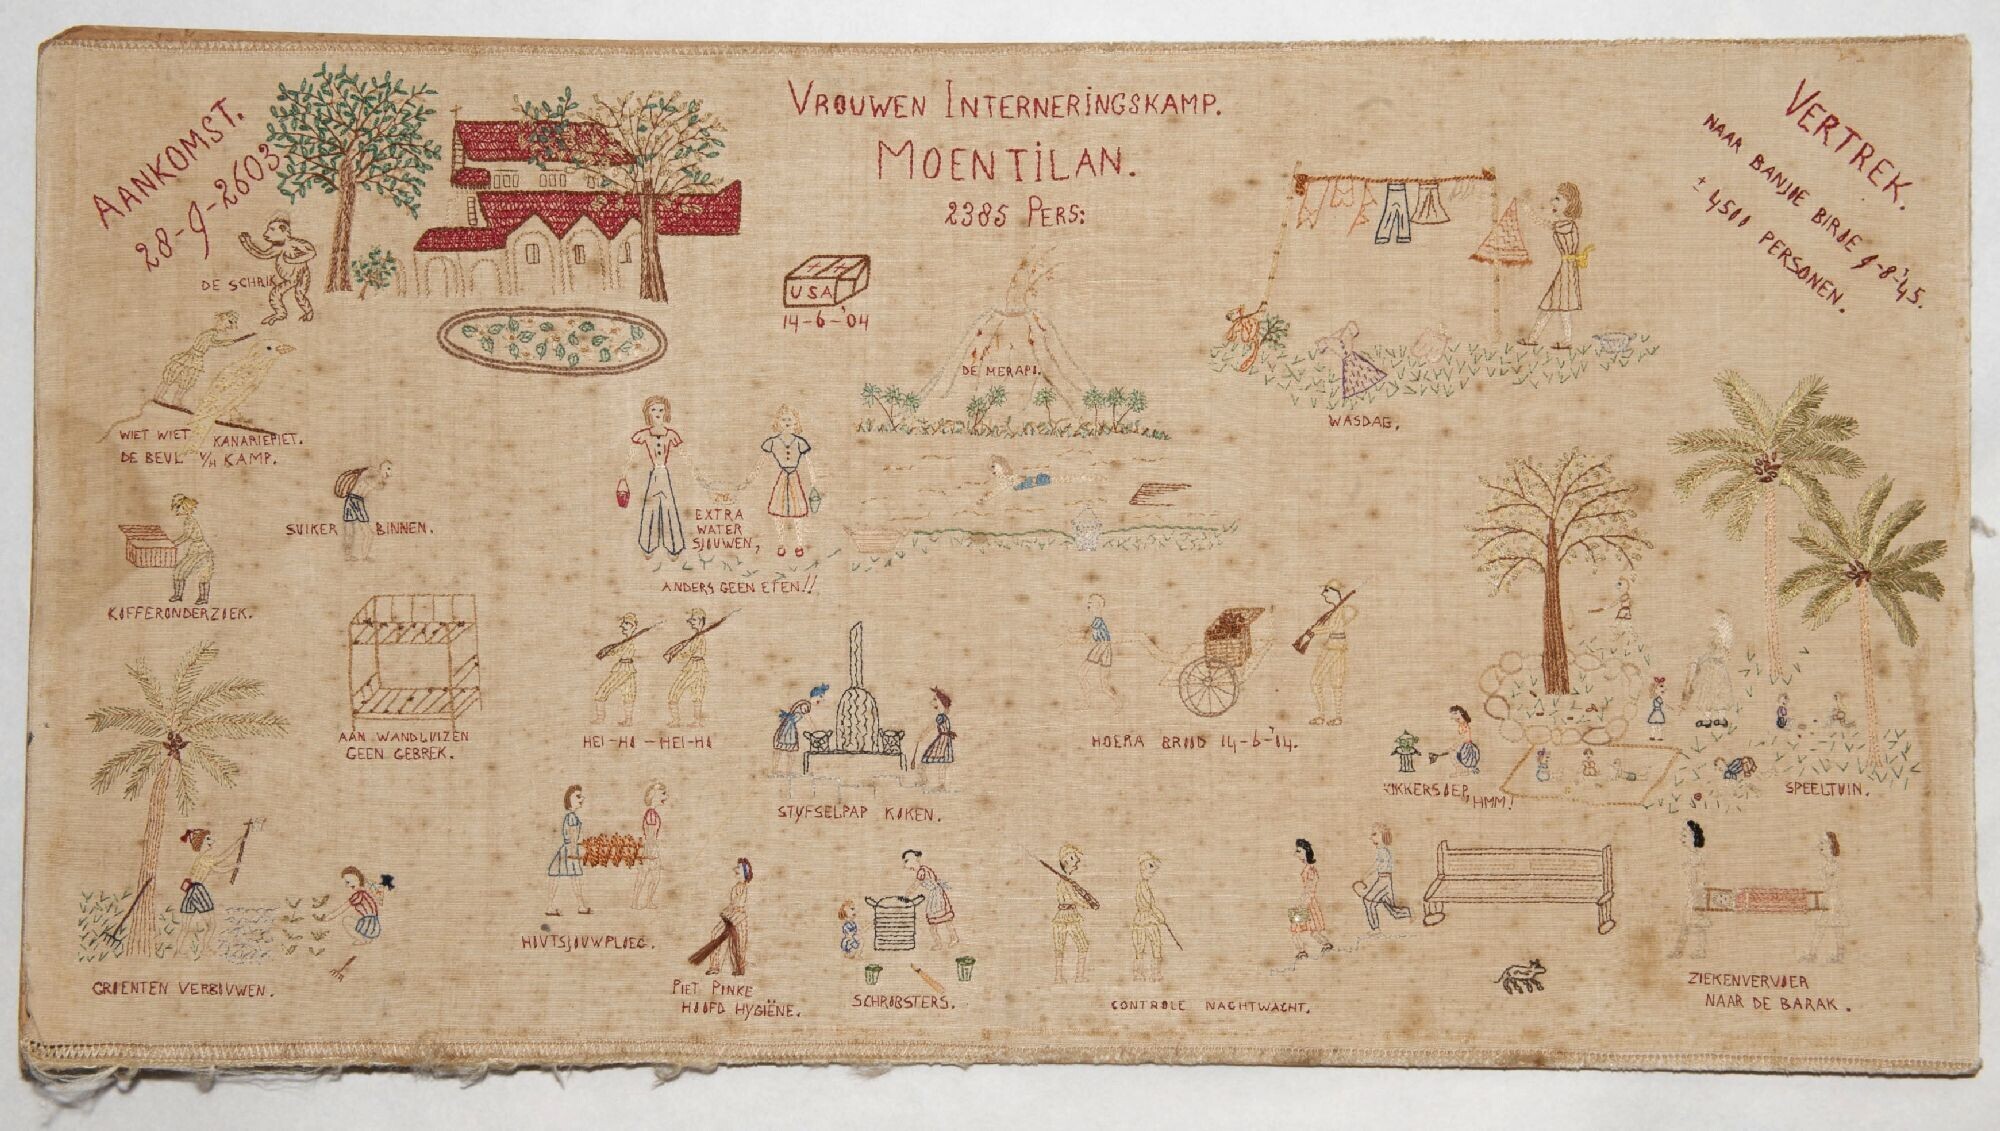 AANKOMST.
28-9-2603
VROUWEN INTERNERINGSKAMP.
MOENTILAN.
2385 PERS:
VERTREK.
NAAR BANJOE BIROE 9-8-'45.
± 4500 PERSONEN.
DE SCHRIK
USA
14-6-'04
DE MERAPI.
WASDAG.
WIET WIET KANARIEPIET.
DE BEUL V/H KAMP.
SUIKER BINNEN.
EXTRA
WATER
SJOUWEN,
ANDERS GEEN ETEN!!
KOFFERONDERZOEK.
AAN WANDLUIZEN
GEEN GEBREK.
HEI-HO-HEI-HO
STYFSELPAP KOKEN.
HOERA BROOD 14-6-'04.
KIKKERSOEP, HMM!
SPEELTUIN.
GROENTEN VERBOUWEN.
HOUTSJOUWPLOEG.
PIET PINKE
HOOFD HYGIËNE.
SCHROBSTERS.
CONTROLE NACHTWACHT.
ZIEKENVERVOER
NAAR DE BARAK.